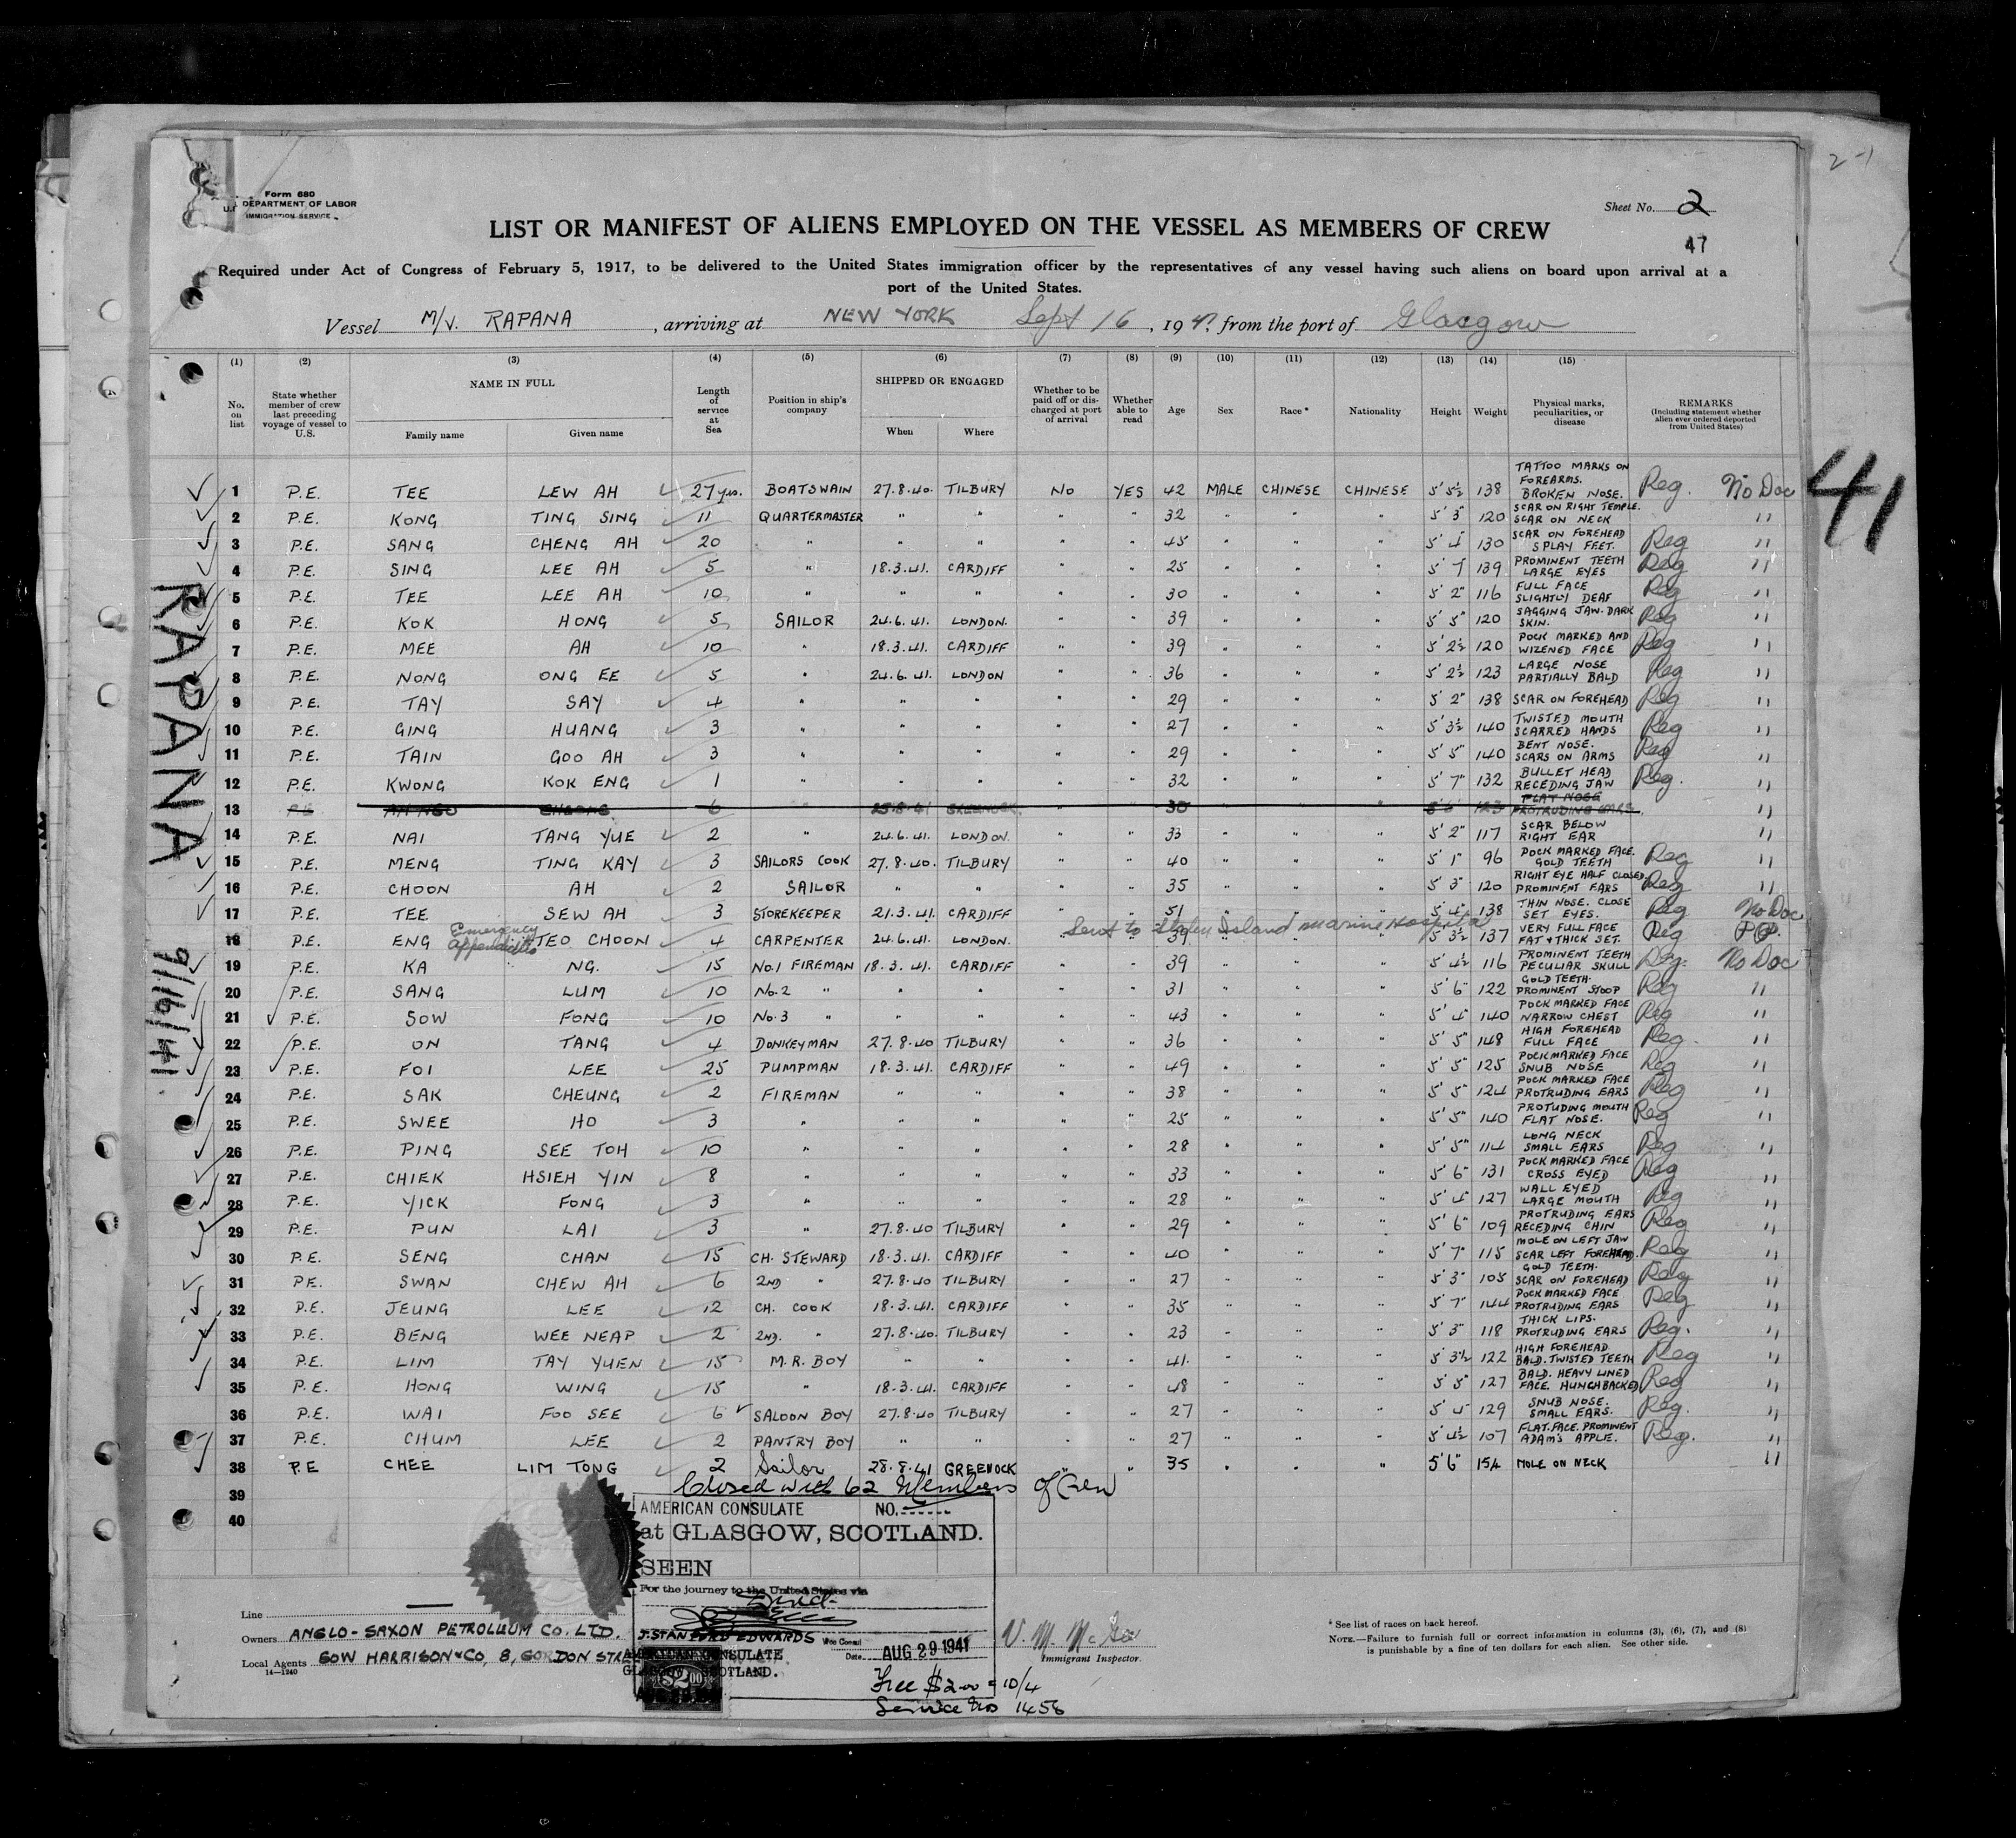 2-1
Form 680
U.S. DEPARTMENT OF LABOR
IMMIGRATION SERVICE
Sheet No. 2
47
LIST OR MANIFEST OF ALIENS EMPLOYED ON THE VESSEL AS MEMBERS OF CREW
Required under Act of Congress of February 5, 1917, to be delivered to the United States immigration officer by the representatives of any vessel having such aliens on board upon arrival at a
port of the United States.
Vessel M/V. RAPANA, arriving at NEW YORK Sept 16, 1941 from the port of Glasgow
(1) (2) (3) (4) (5) (6) (7) (8) (9) (10) (11) (12) (13) (14) (15)
No. on list | State whether member of crew last preceding voyage of vessel to U.S. | NAME IN FULL Family name Given name | Length of service at Sea | Position in ship's company | SHIPPED OR ENGAGED When Where | Whether to be paid off or discharged at port of arrival | Whether able to read | Age | Sex | Race* | Nationality | Height | Weight | Physical marks, peculiarities, or disease | REMARKS (Including statement whether alien ever ordered deported from United States)
41
RAPANA
9/16/41
1 P.E. TEE LEW AH 27 yrs. BOATSWAIN 27.8.40. TILBURY No YES 42 MALE CHINESE CHINESE 5' 5½ 138 TATTOO MARKS ON FOREARMS. BROKEN NOSE. Reg. No Doc
2 P.E. KONG TING SING 11 QUARTERMASTER " " " " 32 " " " 5' 3" 120 SCAR ON RIGHT TEMPLE. SCAR ON NECK "
3 P.E. SANG CHENG AH 20 " " " " " 45 " " " 5' 4" 130 SCAR ON FOREHEAD SPLAY FEET. Reg "
4 P.E. SING LEE AH 5 " 18.3.41. CARDIFF " " 25 " " " 5' 7 139 PROMINENT TEETH LARGE EYES Reg "
5 P.E. TEE LEE AH 10 " " " " " 30 " " " 5' 2" 116 FULL FACE SLIGHTLY DEAF Reg "
6 P.E. KOK HONG 5 SAILOR 24.6.41. LONDON. " " 39 " " " 5' 5" 120 SAGGING JAW. DARK SKIN. Reg "
7 P.E. MEE AH 10 " 18.3.41. CARDIFF " " 39 " " " 5' 2½ 120 POCK MARKED AND WIZENED FACE Reg "
8 P.E. NONG ONG EE 5 " 24.6.41. LONDON " " 36 " " " 5' 2½ 123 LARGE NOSE PARTIALLY BALD Reg "
9 P.E. TAY SAY 4 " " " " " 29 " " " 5' 2" 138 SCAR ON FOREHEAD Reg "
10 P.E. GING HUANG 3 " " " " " 27 " " " 5' 3½ 140 TWISTED MOUTH SCARRED HANDS Reg "
11 P.E. TAIN GOO AH 3 " " " " " 29 " " " 5' 5" 140 BENT NOSE. SCARS ON ARMS Reg "
12 P.E. KWONG KOK ENG 1 " " " " " 32 " " " 5' 7" 132 BULLET HEAD RECEDING JAW Reg. "
13 P.E. AH NGO 6 " GREENOCK " " 30 " " " FLAT NOSE PROTRUDING EARS "
14 P.E. NAI TANG YUE 2 " 24.6.41. LONDON. " " 33 " " " 5' 2" 117 SCAR BELOW RIGHT EAR "
15 P.E. MENG TING KAY 3 SAILORS COOK 27.8.40. TILBURY " " 40 " " " 5' 1" 96 POCK MARKED FACE. GOLD TEETH Reg "
16 P.E. CHOON AH 2 SAILOR " " " " 35 " " " 5' 3" 120 RIGHT EYE HALF CLOSED. PROMINENT EARS Reg "
17 P.E. TEE SEW AH 3 STOREKEEPER 21.3.41. CARDIFF " " 51 " " " 5' 4" 138 THIN NOSE. CLOSE SET EYES. Reg No Doc
Emergency Appendicitis Sent to Staten Island Marine Hospital
18 P.E. ENG TEO CHOON 4 CARPENTER 24.6.41. LONDON. " " 39 5' 3½ 137 VERY FULL FACE FAT & THICK SET. Reg P.P.
19 P.E. KA NG. 15 No.1 FIREMAN 18.3.41. CARDIFF " " 39 " " " 5' 4½ 116 PROMINENT TEETH PECULIAR SKULL Reg. No Doc
20 P.E. SANG LUM 10 No.2 " " " " " 31 " " " 5' 6" 122 GOLD TEETH. PROMINENT STOOP Reg "
21 P.E. SOW FONG 10 No.3 " " " " " 43 " " " 5' 4" 140 POCK MARKED FACE NARROW CHEST Reg "
22 P.E. ON TANG 4 DONKEYMAN 27.8.40 TILBURY " " 36 " " " 5' 5" 148 HIGH FOREHEAD FULL FACE Reg. "
23 P.E. FOI LEE 25 PUMPMAN 18.3.41. CARDIFF " " 49 " " " 5' 5" 125 POCK MARKED FACE SNUB NOSE Reg "
24 P.E. SAK CHEUNG 2 FIREMAN " " " " 38 " " " 5' 5" 124 POCK MARKED FACE PROTRUDING EARS Reg "
25 P.E. SWEE HO 3 " " " " " 25 " " " 5' 5" 140 PROTUDING MOUTH FLAT NOSE. Reg "
26 P.E. PING SEE TOH 10 " " " " " 28 " " " 5' 5" 114 LONG NECK SMALL EARS Reg "
27 P.E. CHIEK HSIEH YIN 8 " " " " " 33 " " " 5' 6" 131 POCK MARKED FACE CROSS EYED Reg "
28 P.E. YICK FONG 3 " " " " " 28 " " " 5' 4" 127 WALL EYED LARGE MOUTH Reg "
29 P.E. PUN LAI 3 " 27.8.40 TILBURY " " 29 " " " 5' 6" 109 PROTRUDING EARS RECEDING CHIN Reg "
30 P.E. SENG CHAN 15 CH. STEWARD 18.3.41. CARDIFF " " 40 " " " 5' 7" 115 MOLE ON LEFT JAW SCAR LEFT FOREHEAD. Reg "
31 P.E. SWAN CHEW AH 6 2ND " 27.8.40 TILBURY " " 27 " " " 5' 3" 105 GOLD TEETH. SCAR ON FOREHEAD Reg "
32 P.E. JEUNG LEE 12 CH. COOK 18.3.41. CARDIFF " " 35 " " " 5' 7" 144 POCK MARKED FACE PROTRUDING EARS Reg "
33 P.E. BENG WEE NEAP 2 2ND. " 27.8.40. TILBURY " " 23 " " " 5' 3" 118 THICK LIPS. PROTRUDING EARS Reg. "
34 P.E. LIM TAY YUEN 15 M.R. BOY " " " " 41 " " " 5' 3½ 122 HIGH FOREHEAD BALD. TWISTED TEETH Reg "
35 P.E. HONG WING 15 " 18.3.41. CARDIFF " " 48 " " " 5' 5" 127 BALD. HEAVY LINED FACE. HUNCHBACKED Reg "
36 P.E. WAI FOO SEE 6 SALOON BOY 27.8.40 TILBURY " " 27 " " " 129 SNUB NOSE. SMALL EARS. Reg. "
37 P.E. CHUM LEE 2 PANTRY BOY " " " " 27 " " " 5' 4½ 107 FLAT FACE. PROMINENT ADAM'S APPLE. Reg. "
38 P.E CHEE LIM TONG 2 Sailor 28.8.41 GREENOCK " " 35 " " " 5' 6" 154 MOLE ON NECK "
39
40
Closed with 62 Members of Crew
AMERICAN CONSULATE NO.
at GLASGOW, SCOTLAND.
SEEN
For the journey to the United States via
J. STANFORD EDWARDS Vice Consul
Date AUG 29 1941
AMERICAN CONSULATE
GLASGOW SCOTLAND.
$2.00
Fee $2.00 = 10/4
Service No 1458
Line
Owners ANGLO-SAXON PETROLEUM CO. LTD.
Local Agents GOW HARRISON & CO, 8, GORDON STRE
14—1240
V. M. Immigrant Inspector.
* See list of races on back hereof.
NOTE.—Failure to furnish full or correct information in columns (3), (6), (7), and (8)
is punishable by a fine of ten dollars for each alien. See other side.